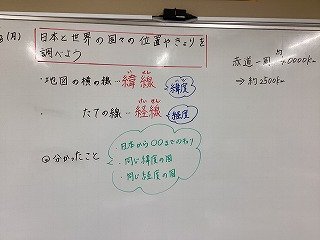 (月)
日本と世界の国々の位置やきょりを
調べよう
・地図の横の線…緯線
いせん
緯度
いど
たての線…経線
けいせん
経度
けいど
分かったこと
・日本から〇〇までのきょり
・同じ緯度の国
・同じ経度の国
赤道一周 40000km
約
⇒約2500km